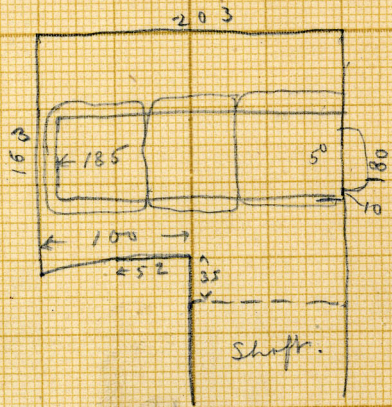 203
163
185
50
80
10
100
52
35
Shaft.